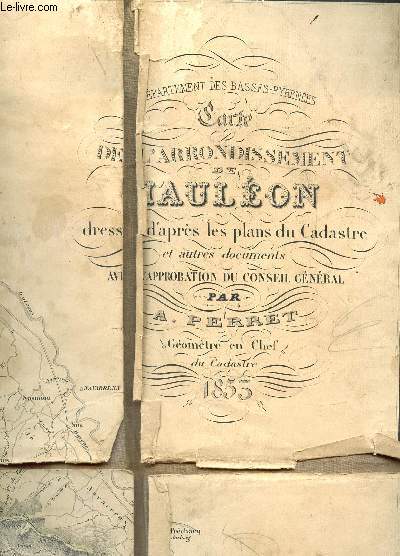 Le-Livre.com
DÉPARTEMENT DES BASSES-PYRÉNÉES
Carte
DE L'ARRONDISSEMENT
DE
MAULÉON
dressée d'après les plans du Cadastre
et autres documents
AVEC APPROBATION DU CONSEIL GÉNÉRAL
PAR
A. PERRET
Géomètre en Chef
du Cadastre
1853
NAVARRENX